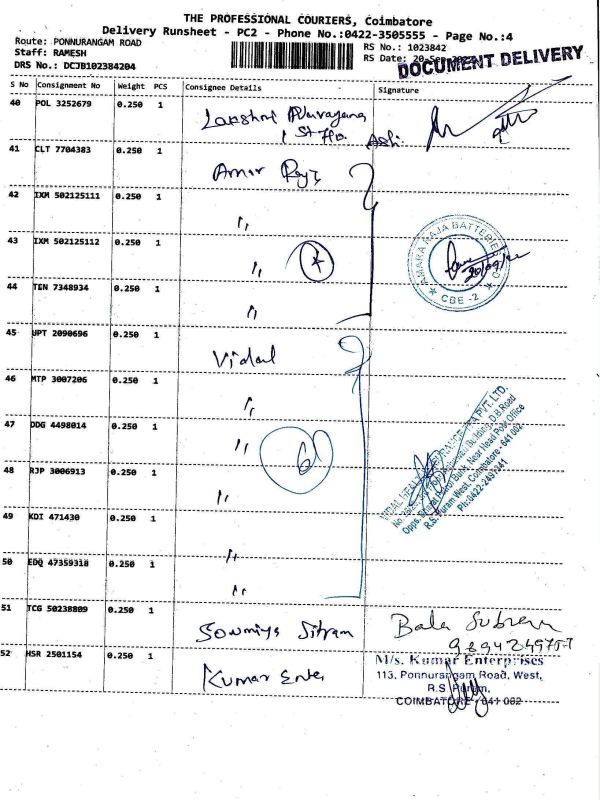 THE PROFESSIONAL COURIERS, Coimbatore
Delivery Runsheet - PC2 - Phone No.:0422-3505555 - Page No.:4
Route: PONNURANGAM ROAD
Staff: RAMESH
DRS No.: DCJB102384204
RS No.: 1023842
RS Date: 20-Sep
DOCUMENT DELIVERY
S No Consignment No Weight PCS Consignee Details Signature
40 POL 3252679 0.250 1 Lakshmi
41 CLT 7704383 0.250 1 Amar
42 IXM 502125111 0.250 1 "
43 IXM 502125112 0.250 1 "
44 TEN 7348934 0.250 1 "
AMARA RAJA BATTERIES
20/09/22
CBE -2
45 UPT 2090696 0.250 1 Vidal
46 MTP 3007206 0.250 1 "
47 DDG 4498014 0.250 1 "
6
48 RJP 3006913 0.250 1 "
49 KDI 471430 0.250 1 "
50 EDQ 47359318 0.250 1 "
PVT. LTD.
Building, D.B.Road
Near Head Post Office
R.S.Puram West, Coimbatore - 641 002
51 TCG 50238809 0.250 1 Sowmiya
Bala
52 HSR 2501154 0.250 1 Kumar Ente
M/s. Kumar Enterprises
113, Ponnurangam Road, West,
R.S. Puram,
COIMBATORE - 641 002